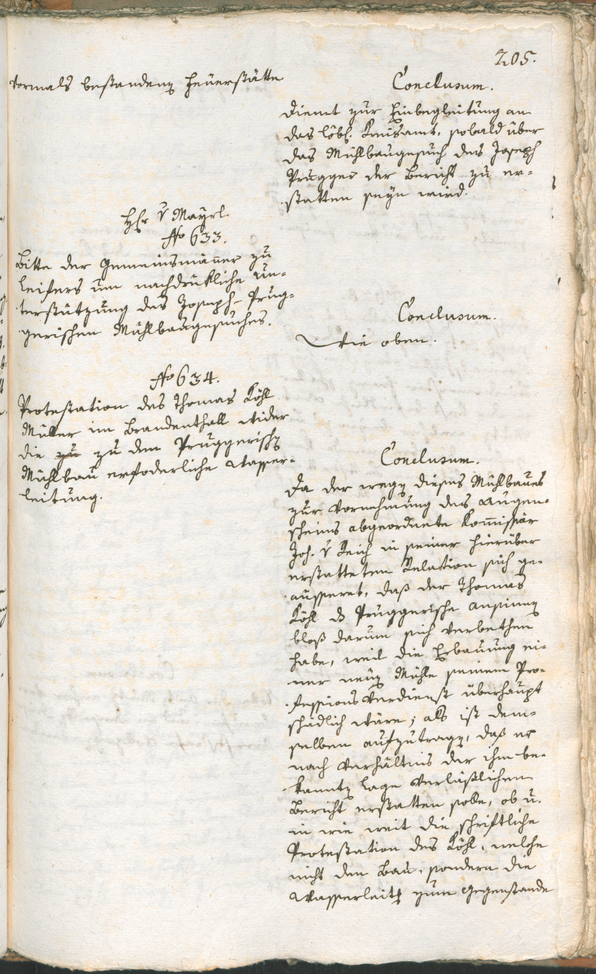 205.
vormals bestandenen Feuerstätte
Conclusum.
dienet zur Einbegleitung an
das löbl. Kreisamt, sobald über
das Mühlbaugesuch des Joseph
Prugger der Bericht zu er-
statten seyn wird.
Hr v Mayrl.
No 633.
Bitte der Gemeinsmäner zu
Leifers um nachdrükliche Un-
terstützung des Joseph Prug-
gerischen Mühlbaugesuches.
Conclusum.
Wie oben.
No 634.
Protestation des Thomas Köhl
Müller im Brandenthall wider
die zu dem Pruggerischen
Mühlbau erforderliche Wasser-
leitung.
Conclusum.
Da der wegen dieses Mühlbaues
zur Vornehmung des Augen-
scheins abgeordnete Komissär
Joh. v Reich in seiner hierüber
erstatteten Relation sich ge-
äusseret, daß der Thomas
Köhl die Pruggerische Ansinnen
bloß darum sich verbethen
habe, weil die Erbauung ei-
ner neuen Mühle seinem Pro-
fessionsverdienst überhaupt
schädlich wäre; als ist dem-
selben aufzutragen, daß er
nach Verhältnis der ihm be-
kannten Lage verläßlichen
Bericht erstatten solle, ob u.
in wie weit die schriftliche
Protestation des Köhl, welche
nicht den Bau, sondern die
Wasserleitung zum Gegenstande